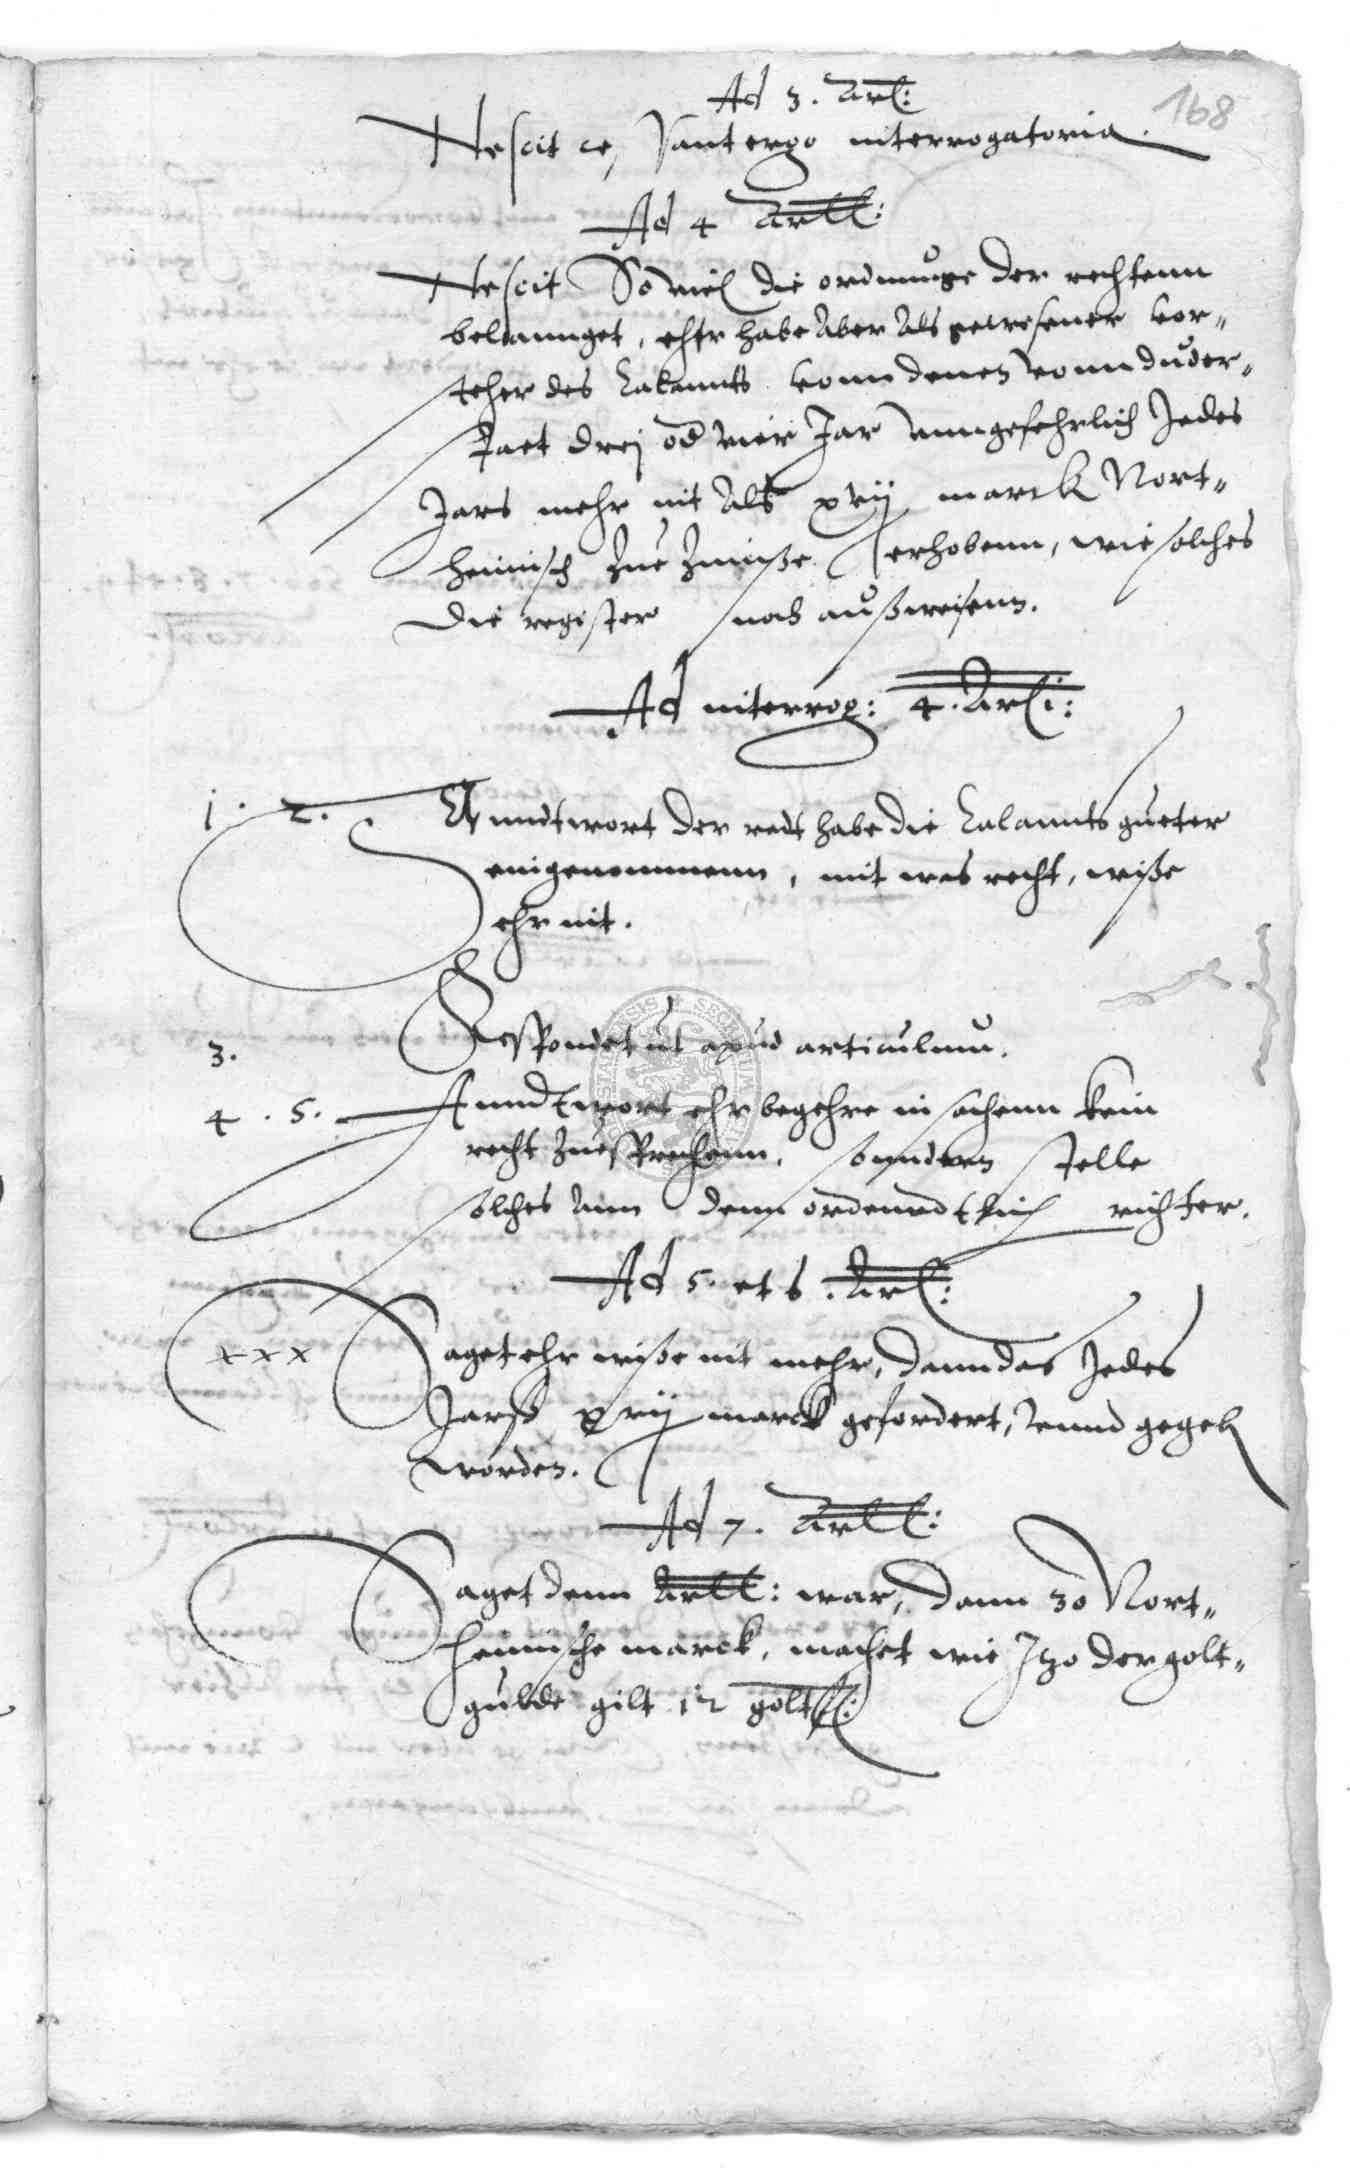 168
Ad 3. Artl:
Nescit ce, Vant ergo interrogatoria.
Ad 4 Artll:
Nescit So viel die ordnunge der rechtenn
belannget, ehr habe aber als gewesener vor-
steher des Calannts vonn denen vonn duder-
staet drej od vier Jar unngefehrlich Jedes
Jars mehr nit als xvij marck Nort-
heimisch Zue Zinnße erhobenn, wie solches
die register noch außweisenn.
Ad interrog: 4. Artli:
1. 2. Anndtwort der radt habe die Calannts gueter
eingenommenn, mit was recht, wiße
ehr nit.
3. Respondet ut apud articulum.
4. 5. Anndtwort ehr begehre in sachenn kein
recht Zuesprechenn, sonndern stelle
solches ann denn ordenndtlich richter.
Ad 5. et 6. Artl:
xxx Saget ehr wiße nit mehr, dann das Jedes
Jarß xvij marck gefordert, unnd gegeb
worden.
Ad 7. Artll:
Saget denn Artll: war, dann 30 Nort-
heimische marck, machet wie Jtzo der golt-
gulde gilt 12 goltfl: